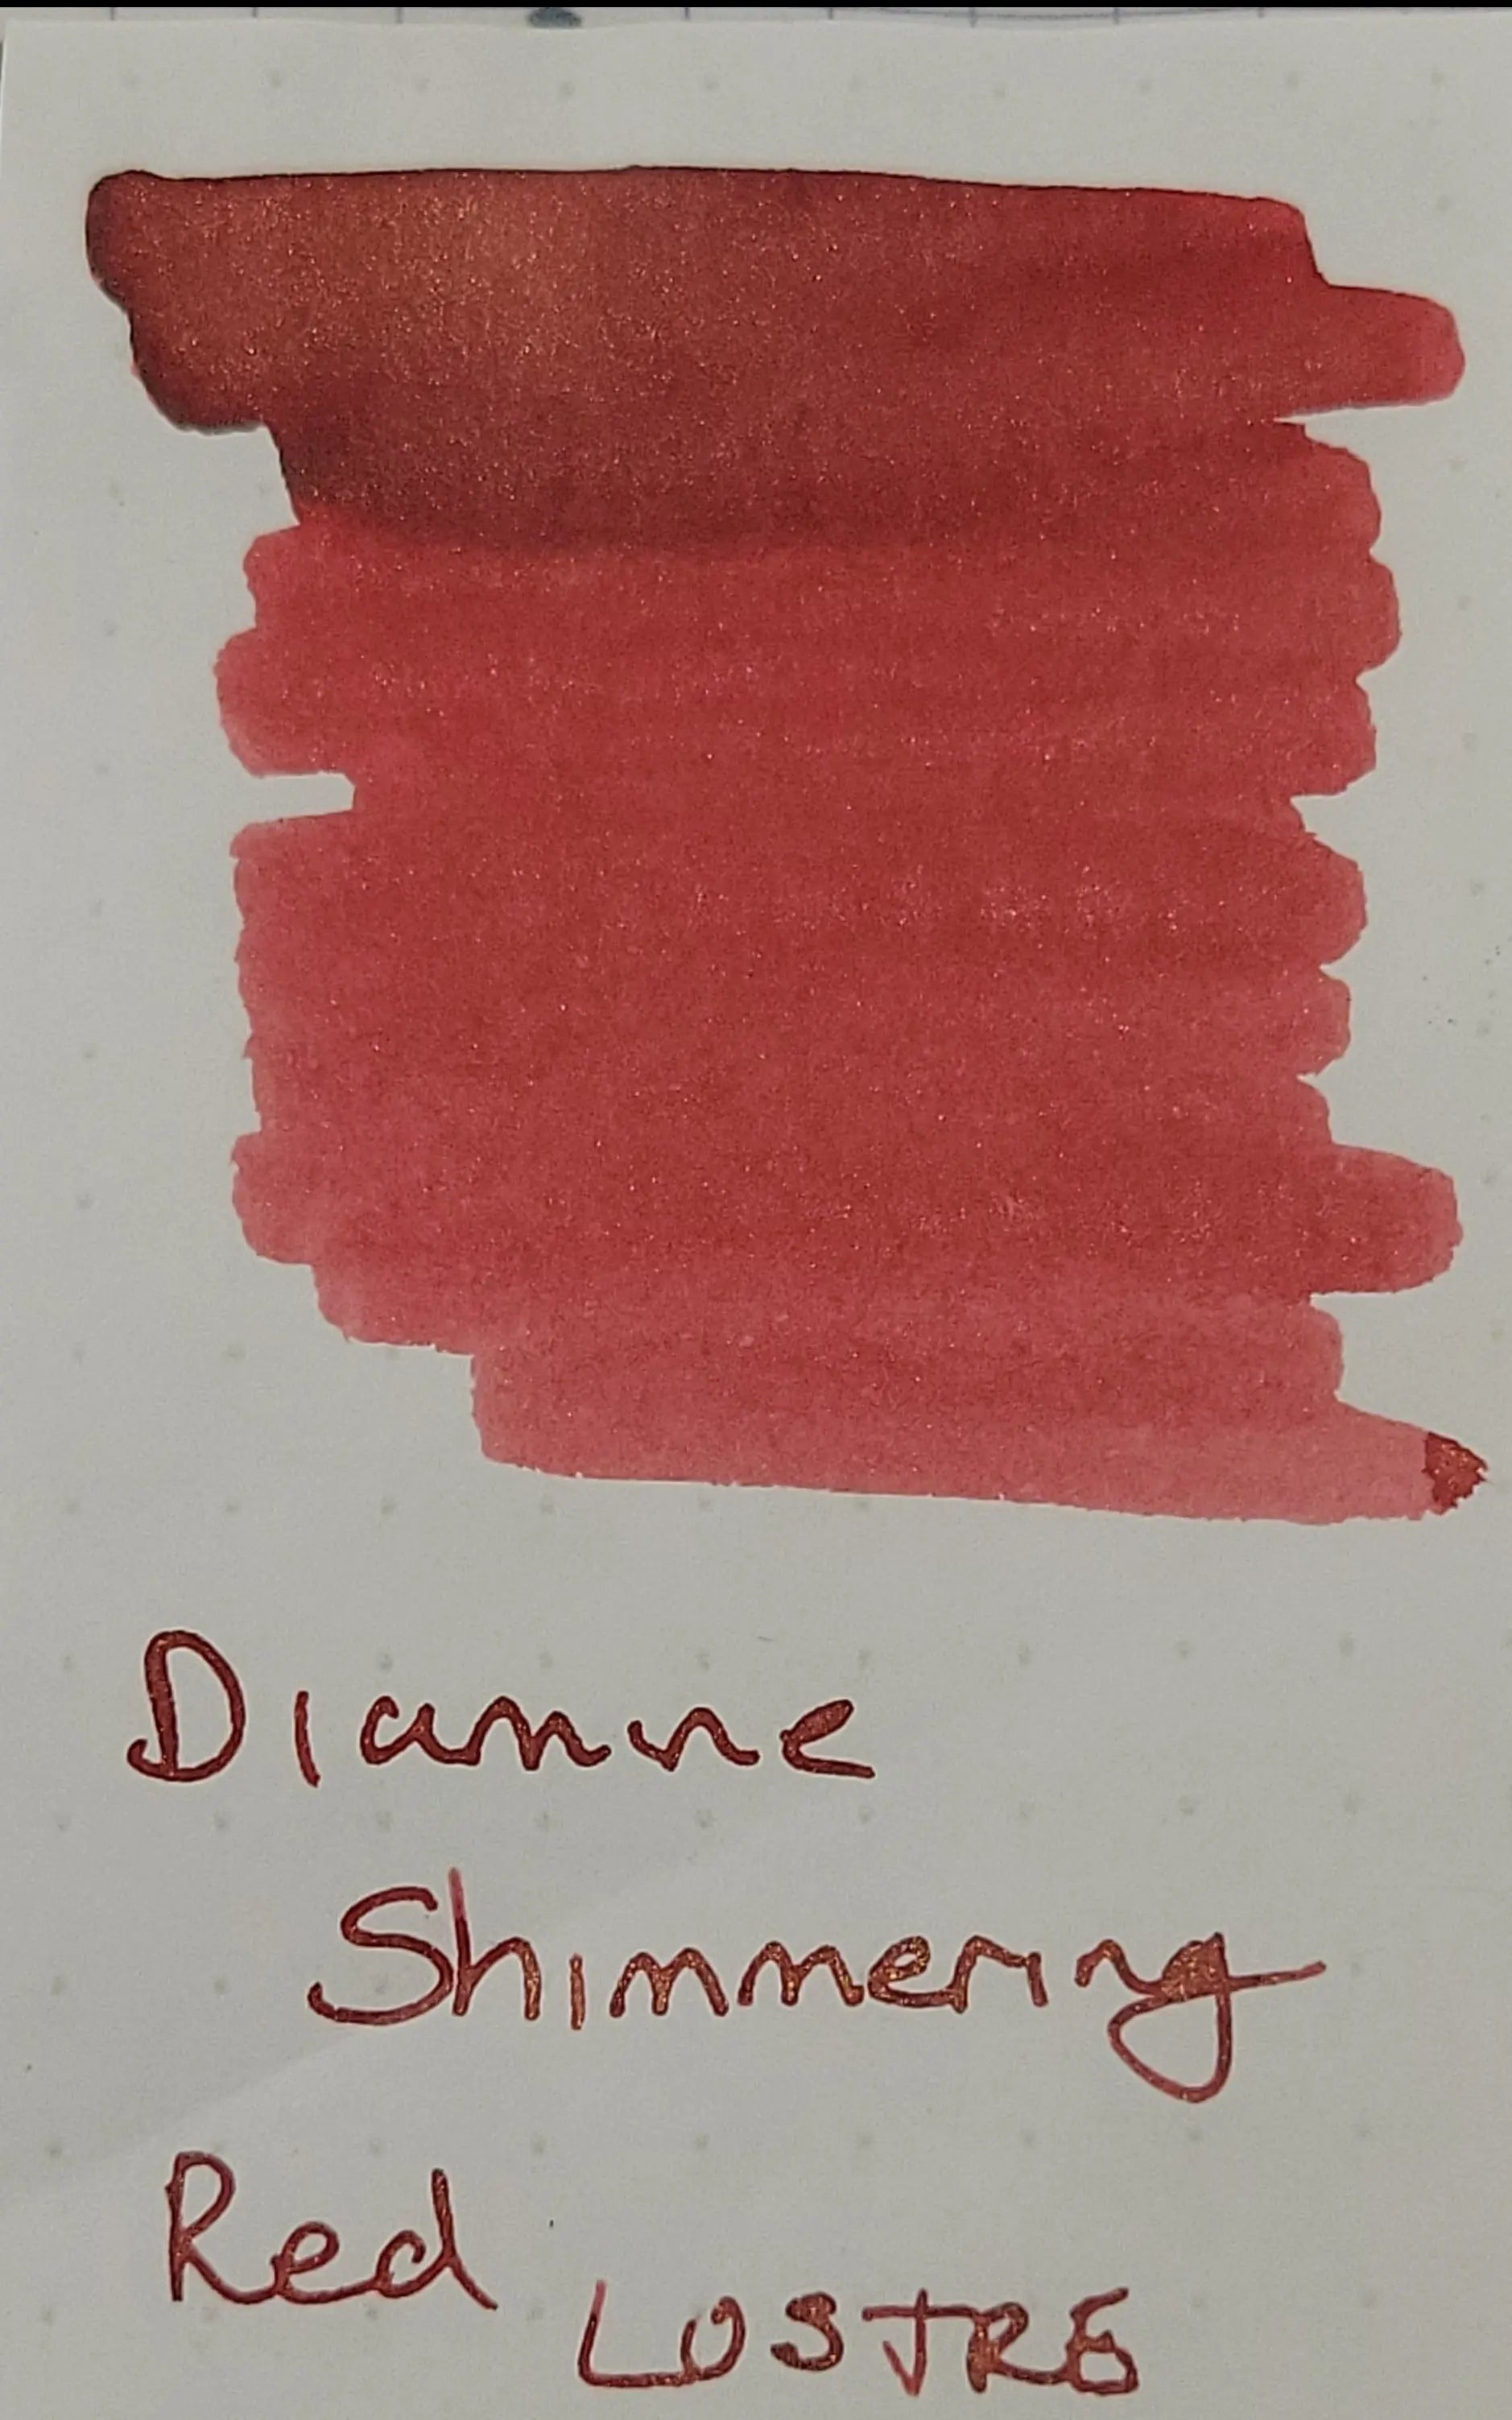 Dianne
Shimmering
Red LUSTRE